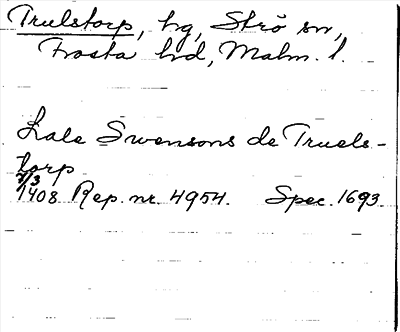 Trulstorp, hg, Strö sn,
Frosta hd, Malm. l.
Lale Swensons de Truels-
torp
7/3
1408 Rep. nr. 4954. Spec. 1693.